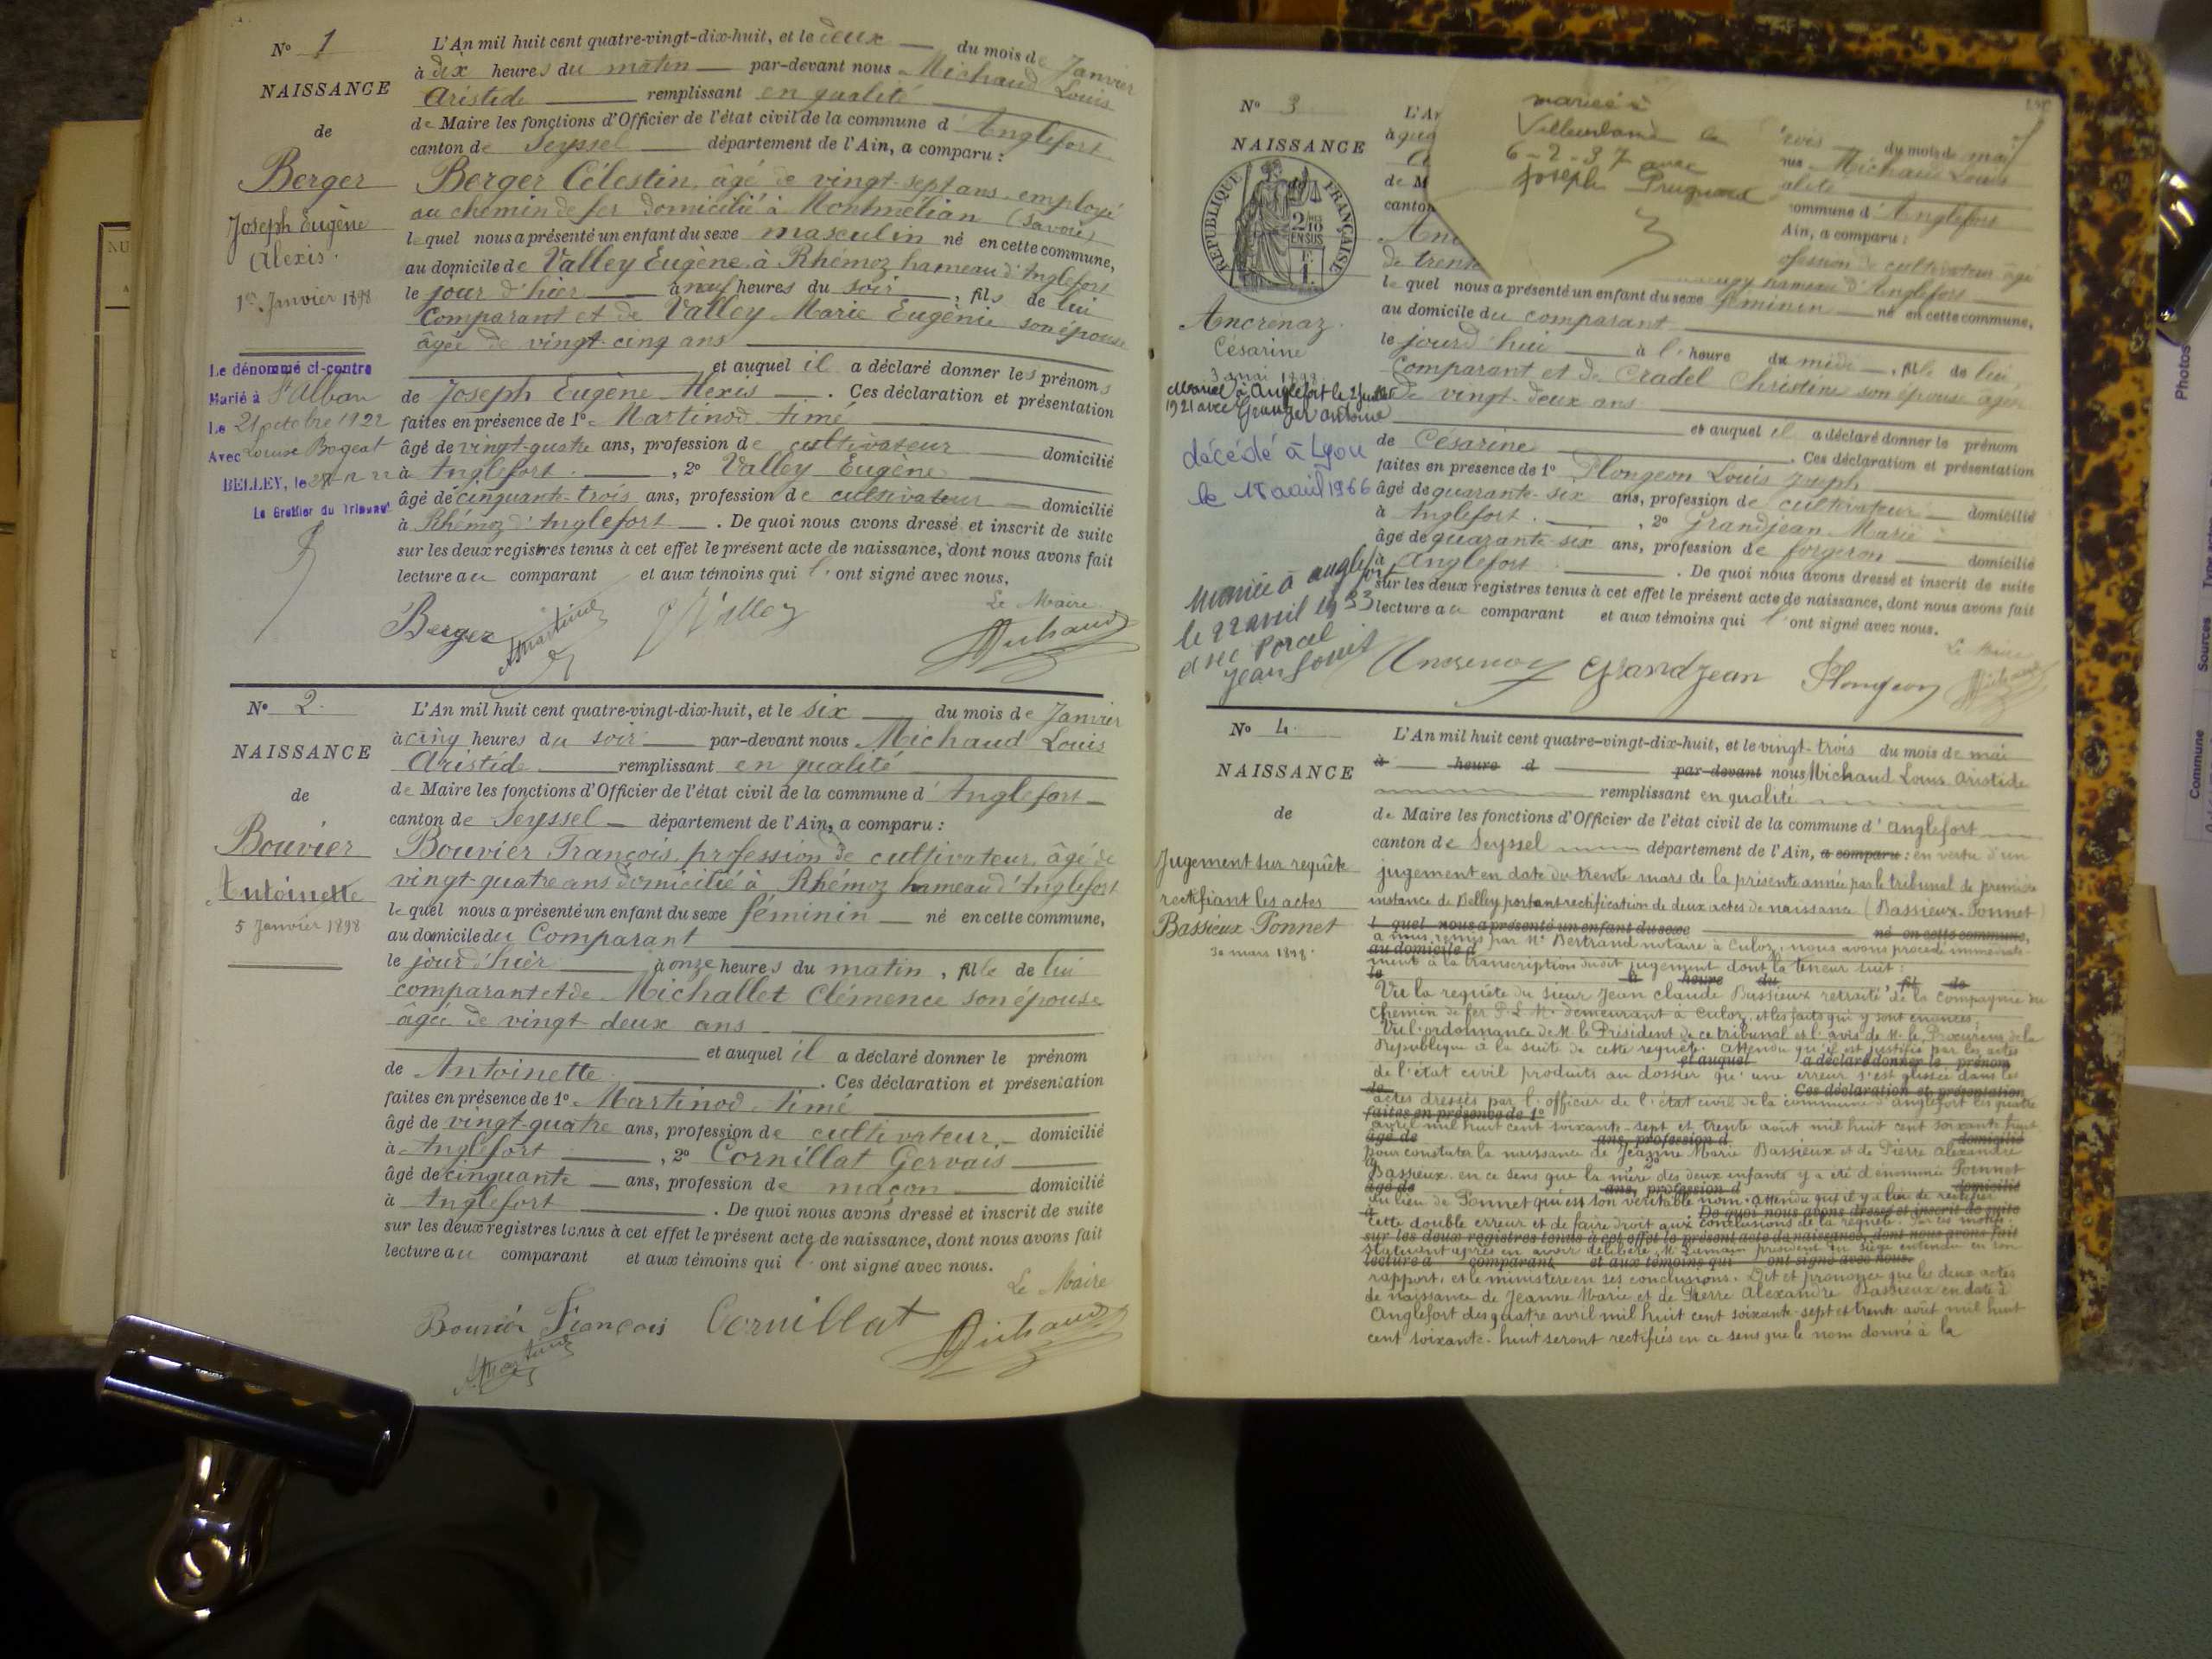 N° 1
NAISSANCE
de
Berger
Joseph Eugène
Alexis.
1er Janvier 1898
Le dénommé ci-contre
Marié à St Alban
Le 21 octobre 1922
Avec Louise Bogeat
BELLEY, le
Le Greffier du Tribunal
L'An mil huit cent quatre-vingt-dix-huit, et le deux du mois de Janvier
à dix heures du matin par-devant nous Michaud Louis
Aristide remplissant en qualité
de Maire les fonctions d'Officier de l'état civil de la commune d'Anglefort
canton de Seyssel département de l'Ain, a comparu :
Berger Célestin, âgé de vingt-sept ans, employé
au chemin de fer domicilié à Montmélian (Savoie)
lequel nous a présenté un enfant du sexe masculin né en cette commune,
au domicile de Valley Eugène, à Rhémoz hameau d'Anglefort
le jour d'hier à neuf heures du soir, fils de lui
Comparant et de Valley Marie Eugénie son épouse
âgée de vingt-cinq ans
et auquel il a déclaré donner les prénoms
de Joseph Eugène Alexis. Ces déclaration et présentation
faites en présence de 1° Martinod Aimé
âgé de vingt-quatre ans, profession de cultivateur domicilié
à Anglefort, 2° Valley Eugène
âgé de cinquante-trois ans, profession de cultivateur domicilié
à Rhémoz d'Anglefort. De quoi nous avons dressé et inscrit de suite
sur les deux registres tenus à cet effet le présent acte de naissance, dont nous avons fait
lecture au comparant et aux témoins qui l'ont signé avec nous.
Le Maire
Berger A Martinod Valley Michaud
N° 2.
NAISSANCE
de
Bouvier
Antoinette
5 Janvier 1898
L'An mil huit cent quatre-vingt-dix-huit, et le six du mois de Janvier
à cinq heures du soir par-devant nous Michaud Louis
Aristide remplissant en qualité
de Maire les fonctions d'Officier de l'état civil de la commune d'Anglefort
canton de Seyssel département de l'Ain, a comparu :
Bouvier François, profession de cultivateur, âgé de
vingt-quatre ans domicilié à Rhémoz hameau d'Anglefort
lequel nous a présenté un enfant du sexe féminin né en cette commune,
au domicile du Comparant
le jour d'hier à onze heures du matin, fille de lui
comparant et de Michallet Clémence son épouse
âgée de vingt deux ans
et auquel il a déclaré donner le prénom
de Antoinette. Ces déclaration et présentation
faites en présence de 1° Martinod Aimé
âgé de vingt-quatre ans, profession de cultivateur domicilié
à Anglefort, 2° Cornillat Gervais
âgé de cinquante ans, profession de maçon domicilié
à Anglefort. De quoi nous avons dressé et inscrit de suite
sur les deux registres tenus à cet effet le présent acte de naissance, dont nous avons fait
lecture au comparant et aux témoins qui l'ont signé avec nous.
Le Maire
Bouvier François Cornillat Michaud
A Martinod
N° 3
NAISSANCE
de
RÉPUBLIQUE FRANÇAISE
2/10 EN SUS
Ancrenaz
Césarine
3 mai 1898
Mariée à Anglefort le 2 juillet
1921 avec Granger antoine
décédé à Lyon
le 18 avril 1966
Mariée à anglefort
le 22 avril 1933
avec Porcel
Jean Louis
mariée à
Villeurbanne le
6-2-37 avec
Joseph Prugnard
L'An
à qua
de M
canton
Anc
de trente
trois du mois de mai
nous Michaud Louis
alité
commune d'Anglefort
Ain, a comparu :
ofession de cultivateur âgé
hameau d'Anglefort
lequel nous a présenté un enfant du sexe féminin né en cette commune,
au domicile du comparant
le jourd'hui à l'heure du midi, fille de lui
Comparant et de Cradel Christine son épouse âgée
de vingt-deux ans
et auquel il a déclaré donner le prénom
de Césarine. Ces déclaration et présentation
faites en présence de 1° Plongeon Louis Joseph
âgé de quarante-six ans, profession de cultivateur domicilié
à Anglefort, 2° Grandjean Marie
âgé de quarante-six ans, profession de forgeron domicilié
à Anglefort. De quoi nous avons dressé et inscrit de suite
sur les deux registres tenus à cet effet le présent acte de naissance, dont nous avons fait
lecture au comparant et aux témoins qui l'ont signé avec nous.
Le Maire
Ancrenaz Grandjean Plongeon Michaud
N° 4
NAISSANCE
de
Jugement sur requête
rectifiant les actes
Bassieux Ponnet
30 mars 1898
L'An mil huit cent quatre-vingt-dix-huit, et le vingt-trois du mois de mai
à heure d par-devant nous Michaud Louis Aristide
remplissant en qualité
de Maire les fonctions d'Officier de l'état civil de la commune d'Anglefort
canton de Seyssel département de l'Ain, a comparu : en vertu d'un
jugement en date du trente mars de la présente année par le tribunal de première
instance de Belley portant rectification de deux actes de naissance (Bassieux-Ponnet)
l quel nous a présenté un enfant du sexe né en cette commune,
à nous remis par Me Bertrand notaire à Culoz, nous avons procédé immédiate-
au domicile d
ment à la transcription dudit jugement dont la teneur suit :
le à heure du, fil de
Vu la requête du sieur Jean Claude Bassieux retraité de la Compagnie du
Chemin de fer P.L.M. demeurant à Culoz, et les faits qui y sont énoncés,
Vu l'ordonnance de M. le Président de ce tribunal et l'avis de M. le Procureur de la
République à la suite de cette requête. Attendu qu'il est justifié par les actes
et auquel a déclaré donner le prénom
de l'état civil produits au dossier qu'une erreur s'est glissée dans les
de Ces déclaration et présentation
actes dressés par l'officier de l'état civil de la commune d'Anglefort les quatre
faites en présence de 1°
avril mil huit cent soixante-sept et trente août mil huit cent soixante huit
âgé de ans, profession d domicilié
pour constater la naissance de Jeanne Marie Bassieux et de Pierre Alexandre
à 2°
Bassieux en ce sens que la mère des deux enfants y a été dénommée Ponnet
âgé de ans, profession d domicilié
au lieu de Ponnet qui est son véritable nom. Attendu qu'il y a lieu de rectifier
à De quoi nous avons dressé et inscrit de suite
cette double erreur et de faire droit aux conclusions de la requête. Par ces motifs.
sur les deux registres tenus à cet effet le présent acte de naissance, dont nous avons fait
Statuant après en avoir délibéré, Mr président du siège entendu en son
lecture à comparant et aux témoins qui ont signé avec nous.
rapport, et le ministère en ses conclusions. Dit et prononce que les deux actes
de naissance de Jeanne Marie et de Pierre Alexandre Bassieux en date à
Anglefort des quatre avril mil huit cent soixante-sept et trente août mil huit
cent soixante-huit seront rectifiés en ce sens que le nom donné à la
Photos
Sources
Commune